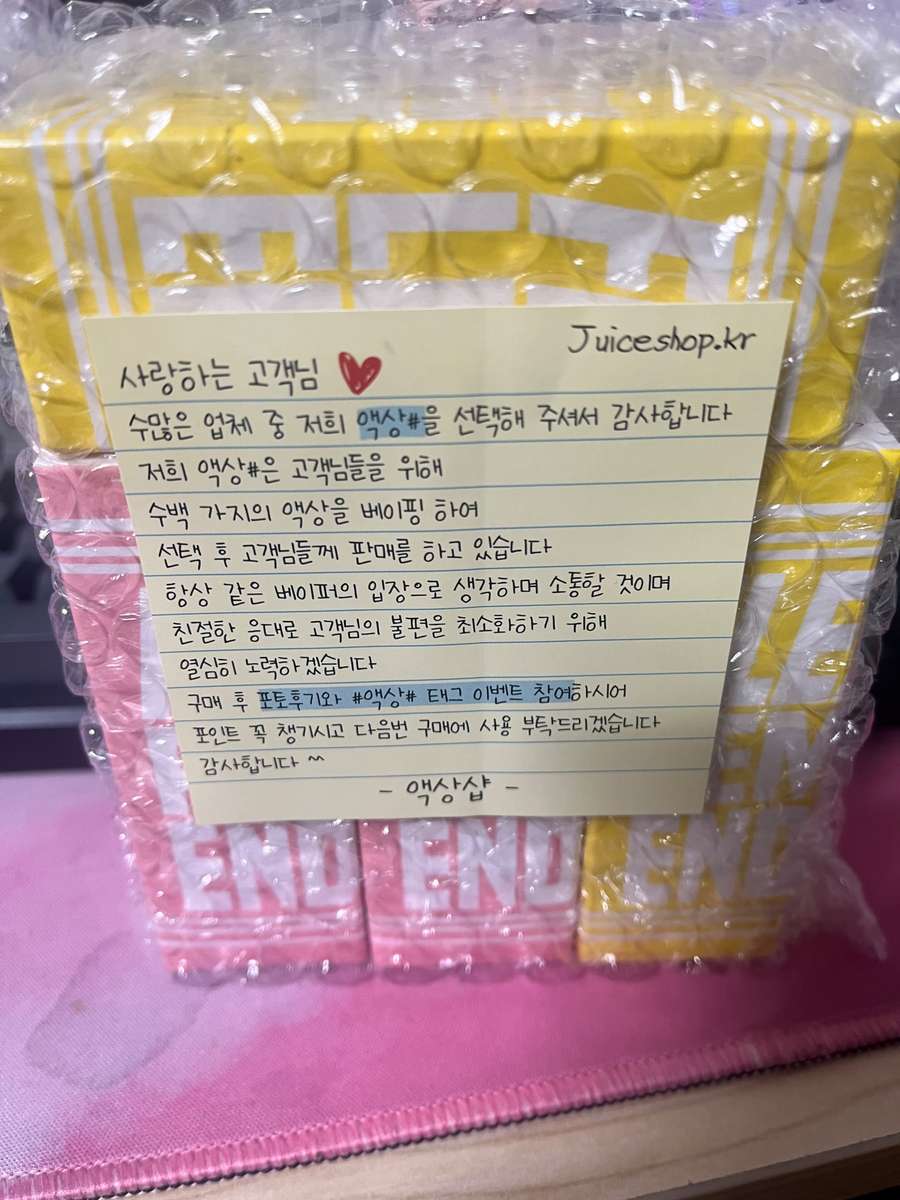 Juiceshop.kr
사랑하는 고객님
수많은 업체 중 저희 액상#을 선택해 주셔서 감사합니다
저희 액상#은 고객님들을 위해
수백 가지의 액상을 베이핑 하여
선택 후 고객님들께 판매를 하고 있습니다
항상 같은 베이퍼의 입장으로 생각하며 소통할 것이며
친절한 응대로 고객님의 불편을 최소화하기 위해
열심히 노력하겠습니다
구매 후 포토후기와 #액상# 태그 이벤트 참여하시어
포인트 꼭 챙기시고 다음번 구매에 사용 부탁드리겠습니다
감사합니다 ^^
- 액상샵 -
END END END